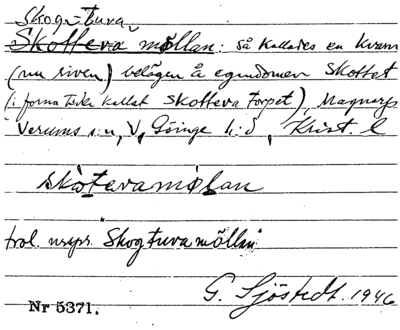 Skog-tuva
Skotteva möllan: så kallades en kvarn
(nu riven) belägen å egendomen Skottet
(i forna tider kallat Skotteva torpet), Magnarp
Verums s:n, V. Göinge h:d, Krist. l
skòtevamölan
trol. urspr. "Skogtuvamöllan"
G. Sjöstedt. 1946
Nr 5371.